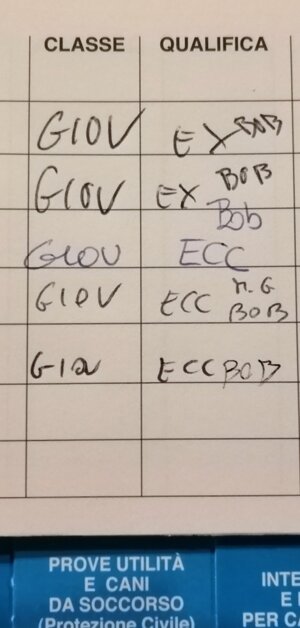 CLASSE QUALIFICA
GIOV EX BOB
GIOV EX BOB
Bob
GIOV ECC
GIOV ECC M.G
BOB
GIOV ECC BOB
PROVE UTILITÀ
E CANI
DA SOCCORSO
(Protezione Civile)
INTE
E
PER CA